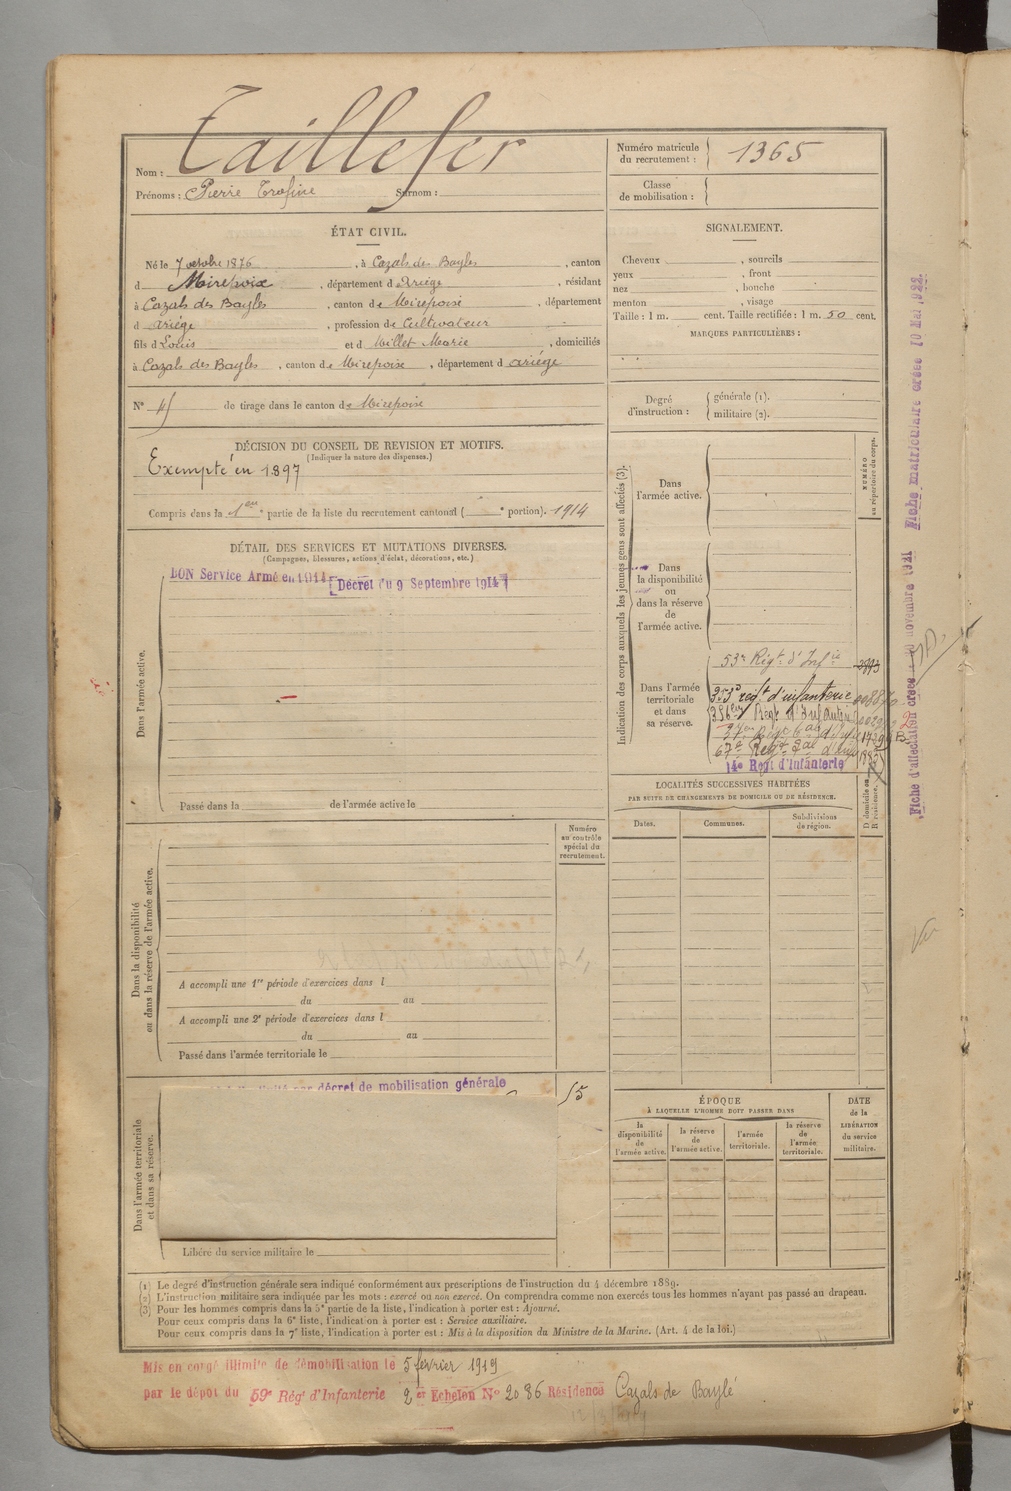 Nom : Taillefer
Prénoms : Pierre Trofine Surnom :
Numéro matricule du recrutement : 1365
Classe de mobilisation :
ÉTAT CIVIL.
Né le 7 octobre 1876, à Cazals des Bayles, canton
d Mirepoix, département d Ariège, résidant
à Cazals des Bayles, canton de Mirepoise, département
d Ariège, profession de Cultivateur
fils d Louis et d Millet Marie, domiciliés
à Cazals des Bayles, canton de Mirepoise, département d Ariége
N° de tirage dans le canton de Mirepoise
SIGNALEMENT.
Cheveux , sourcils
yeux , front
nez , bouche
menton , visage
Taille : 1 m. cent. Taille rectifiée : 1 m. 50 cent.
MARQUES PARTICULIÈRES :
Degré d'instruction : générale (1).
militaire (2).
DÉCISION DU CONSEIL DE REVISION ET MOTIFS.
(Indiquer la nature des dispenses.)
Exempté en 1897
Compris dans la 1ere partie de la liste du recrutement cantonal ( e portion). 1914
DÉTAIL DES SERVICES ET MUTATIONS DIVERSES.
(Campagnes, blessures, actions d'éclat, décorations, etc.)
BON Service Armé en 1914 Décret du 9 Septembre 1914
Dans l'armée active.
Passé dans la de l'armée active le
Indication des corps auxquels les jeunes gens sont affectés (3).
NUMÉRO au répertoire du corps.
Dans l'armée active.
Dans la disponibilité ou dans la réserve de l'armée active.
Dans l'armée territoriale et dans sa réserve.
53e Régt d'Infie
353e regt d'infanterie
14e Regt d'Infanterie
LOCALITÉS SUCCESSIVES HABITÉES
PAR SUITE DE CHANGEMENTS DE DOMICILE OU DE RÉSIDENCE.
Dates. Communes. Subdivisions de région. D domicile ou R résidence.
Numéro au contrôle spécial du recrutement.
Dans la disponibilité ou dans la réserve de l'armée active.
A accompli une 1re période d'exercices dans l
du au
A accompli une 2e période d'exercices dans l
du au
Passé dans l'armée territoriale le
par décret de mobilisation générale
15
Dans l'armée territoriale et dans sa réserve.
Libéré du service militaire le
ÉPOQUE
À LAQUELLE L'HOMME DOIT PASSER DANS
la disponibilité de l'armée active.
la réserve de l'armée active.
l'armée territoriale.
la réserve de l'armée territoriale.
DATE de la LIBÉRATION du service militaire.
(1) Le degré d'instruction générale sera indiqué conformément aux prescriptions de l'instruction du 4 décembre 1889.
(2) L'instruction militaire sera indiquée par les mots : exercé ou non exercé. On comprendra comme non exercés tous les hommes n'ayant pas passé au drapeau.
(3) Pour les hommes compris dans la 5e partie de la liste, l'indication à porter est : Ajourné.
Pour ceux compris dans la 6e liste, l'indication à porter est : Service auxiliaire.
Pour ceux compris dans la 7e liste, l'indication à porter est : Mis à la disposition du Ministre de la Marine. (Art. 4 de la loi.)
Mis en congé illimité de démobilisation le 5 février 1919
par le dépôt du 59e Régt d'Infanterie 2er Echelon N° 2086 Résidence Cazals de Baylé
Fiche d'affectation créée novembre 1921 Fiche matriculaire créée 10 Mai 1922.
Vu